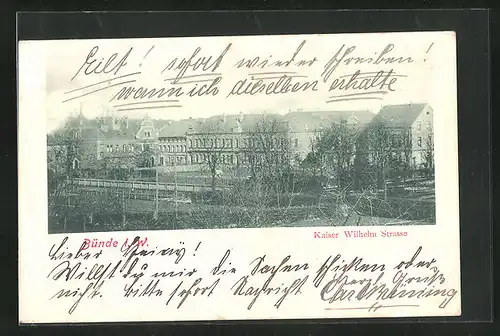 Eilt! sofort wieder schreiben!
wann ich dieselben erhalte
Kaiser Wilhelm Strasse
Bünde i. W.
Lieber !
Willst du mir die Sachen schicken oder
nicht. Bitte sofort Nachricht Herzl. Grüsse
Carl